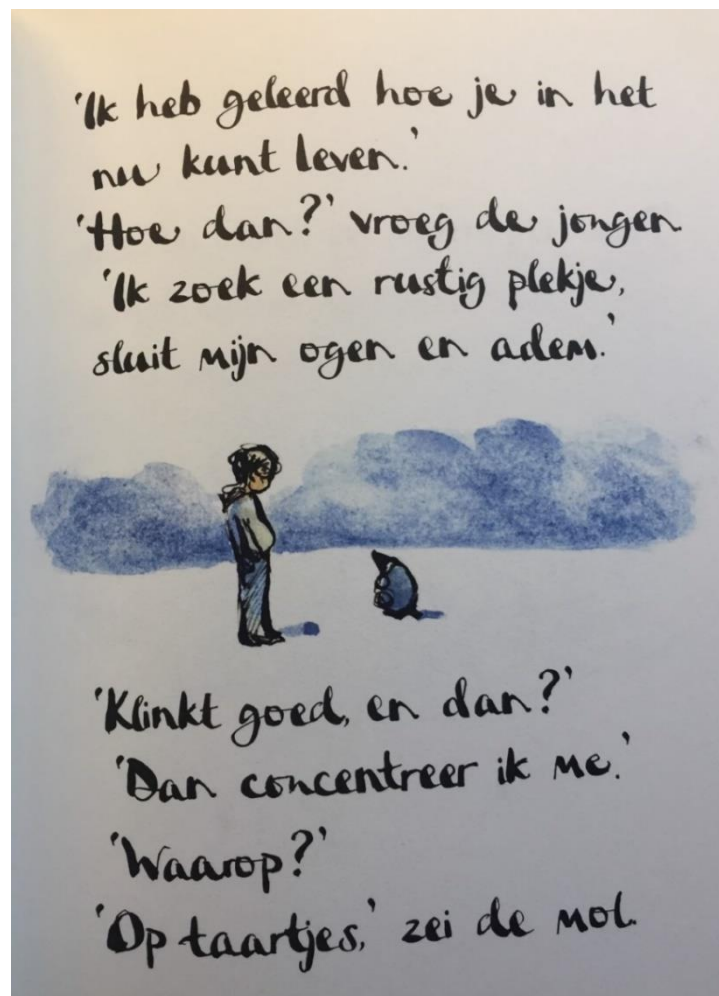 'Ik heb geleerd hoe je in het
nu kunt leven.'
'Hoe dan?' vroeg de jongen.
'Ik zoek een rustig plekje,
sluit mijn ogen en adem.'
'Klinkt goed, en dan?'
'Dan concentreer ik me.'
'Waarop?'
'Op taartjes,' zei de mol.